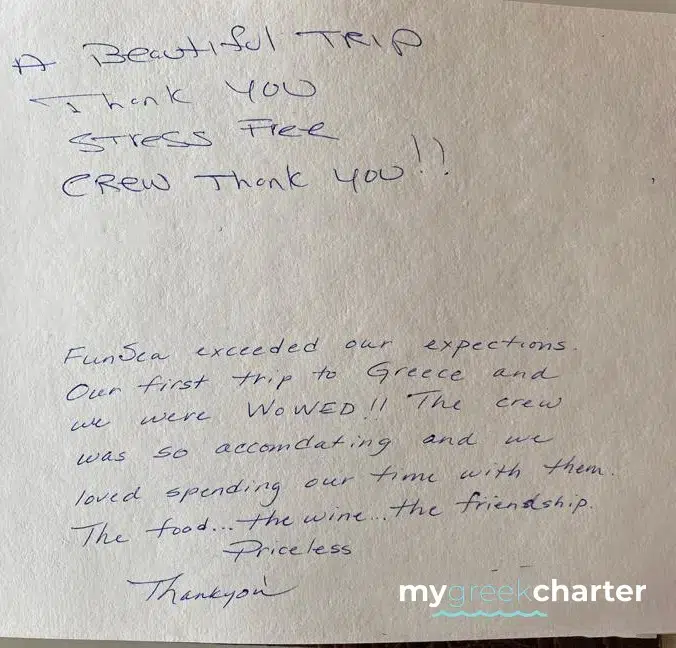 A Beautiful TRIP
Thank YOU
STRESS Free
CREW Thank YOU!!
FunSea exceeded our expections.
Our first trip to Greece and
we were WOWED!! The crew
was so accomdating and we
loved spending our time with them.
The food...the wine...the friendship.
Priceless
Thankyou
mygreekcharter